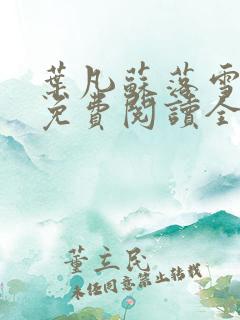 葉凡蘇落雪
免費閱讀全
董立民
未經同意禁止轉載